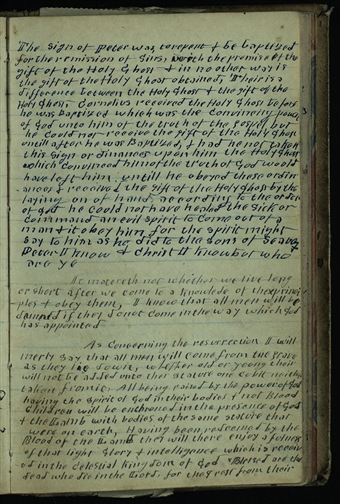 The sign of Peter was to repent & be baptized
for the remission of Sins, with the promise of the
gift of the Holy Ghost & in no other way is
the gift of the Holy Ghost obtained, There is a
difference between the Holy Ghost & the gift of the
Holy Ghost. Cornelius received the Holy Ghost before
he was Baptized which was the convincing power
of God unto him of the truth of the gospel but
he could not receive the gift of the Holy Ghost
untill after he was Baptized, & had he not taken
this sign or ordinances upon him the Holy Ghost
which convinced him of the truth of God would
have left him, untill he obeyed these ordin-
ances & received the gift of the Holy Ghost by the
laying on of hands, according to the order
of god he could not have healed the sick or
command an evil spirit to come out of a
man & it obey him, for the spirit might
say to him as he did to the Sons of Sceva
Peter I know & Christ I know but who
are ye
It mattereth not whether we live long
or short after we come to a knowledge of these princi-
ples & obey them, I know that all men will be
damned if they do not come in the way which God
has appointed
As Concerning the resurrection I will
merly say that all men will come from the grave
as they lie down, whether old or young their
will not be added unto ther stature one cubit neither
taken from it. All being raised by the power of God
having the spirit of God in their bodies & not Blood
Children will be enthroned in the presence of God
& the Lamb with bodies of the same stature that
were on earth, Having been redeemed by the
Blood of the Lamb they will there enjoy a fulness
of that light Glory & intelligence which is receiv-
ed in the celestial kingdom of God. Blessed are the
dead who die in the Lord. for they rest from their